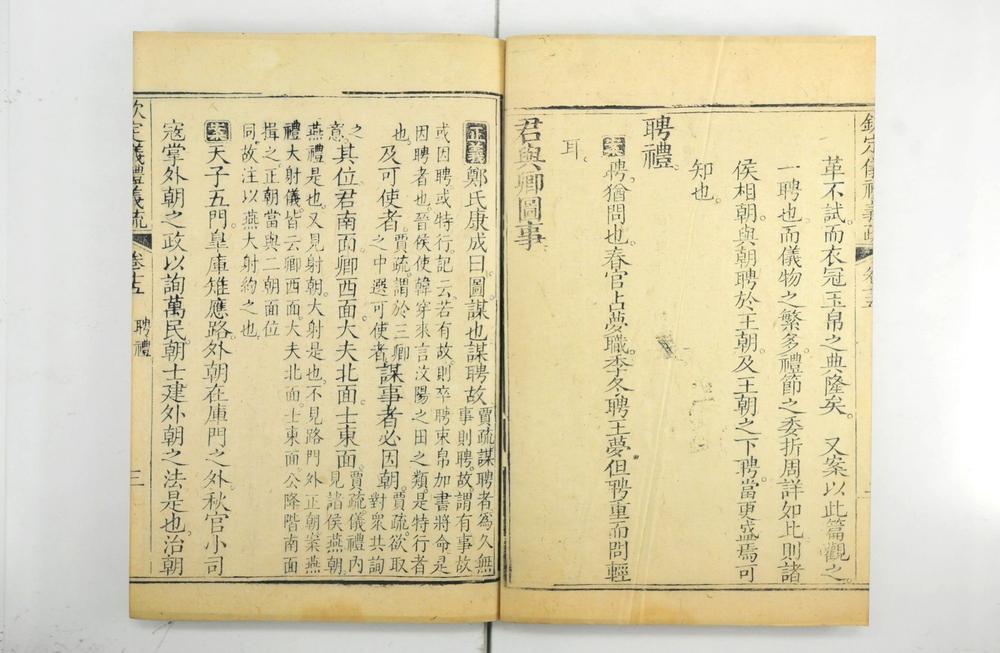 欽定儀禮義疏
卷十五
革不試而衣冠玉帛之典隆矣。又案以此篇觀之。
一聘也。而儀物之繁多。禮節之委折周詳如此則諸
侯相朝。與朝聘於王朝。及王朝之下聘。當更盛焉可
知也。
聘禮。
案聘。猶問也。春官占夢職季冬聘王夢。但聘重而問輕
耳。
君與卿圖事
正義鄭氏康成曰。圖。謀也。謀聘故
賈疏謀聘者爲久無
事則聘。故謂有事故
或因聘或特行。記云。若有故則卒聘束帛加書將命是
因聘者也。晉侯使韓穿來言汶陽之田之類是特行者
也。
及可使者。
賈疏。謂於三卿
之中選可使者。
謀事者必因朝。
賈疏。欲取
對衆共詢
之
意。
其位君南面卿西面大夫北面士東面。
賈疏儀禮內
見諸侯燕朝。
燕禮是也。又見射朝。大射是也。不見路門外正朝案燕
禮大射儀皆云卿西面大夫北面士東面。公降階南面
揖之。正朝當與二朝面位
同。故注以燕大射約之也。
案天子五門。皐庫雉應路。外朝在庫門之外。秋官小司
寇掌外朝之政以詢萬民。朝士建外朝之法是也。治朝
欽定儀禮義疏
卷十五
聘禮
三